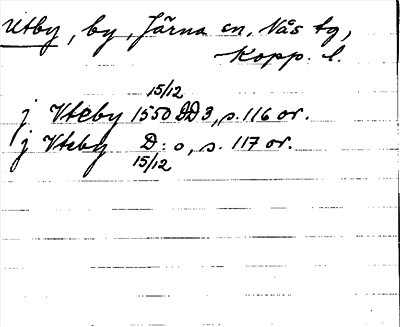 Utby, by, Järna sn, Nås tg,
Kopp. l.
15/12
j Vteby 1550 DD 3, s. 116 or.
j Vteby D:o, s. 117 or.
15/12